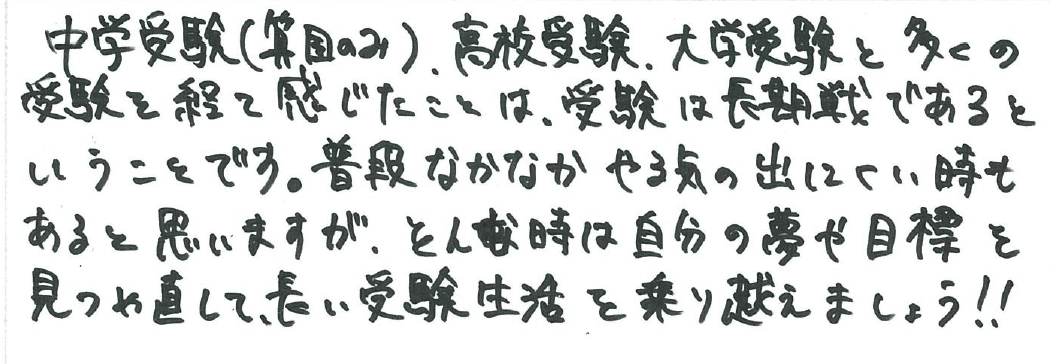 中学受験(算国のみ)、高校受験、大学受験と多くの
受験を経て感じたことは、受験は長期戦であると
いうことです。普段なかなかやる気の出にくい時も
あると思いますが、とんな時は自分の夢や目標を
見つめ直して、長い受験生活を乗り越えましょう!!